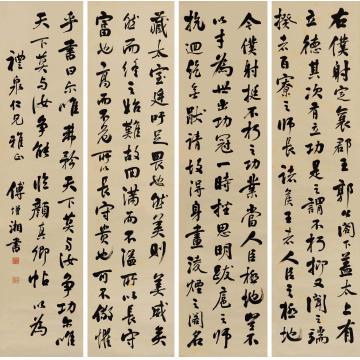 右僕射定襄郡王郭公閤下蓋太上有
立德其次有立功是之謂不朽抑又聞之端
揆者百寮之師長諸侯王者人臣之極地
今僕射挺不朽之功業當人臣極地豈不
以才為世出功冠一時挫思明跋扈之師
抗迴紇無猒請故得身畫凌煙之閣名
藏太室廷吁足畏也然美則美矣
然而終之始難故曰滿而不溢所以長守
富也高而不危所以長守貴也可不儆懼
乎書曰尔唯弗矜天下莫与汝爭功尔唯
天下莫与汝爭能臨顏真卿帖以為
禮泉仁兄雅正 傅增湘書